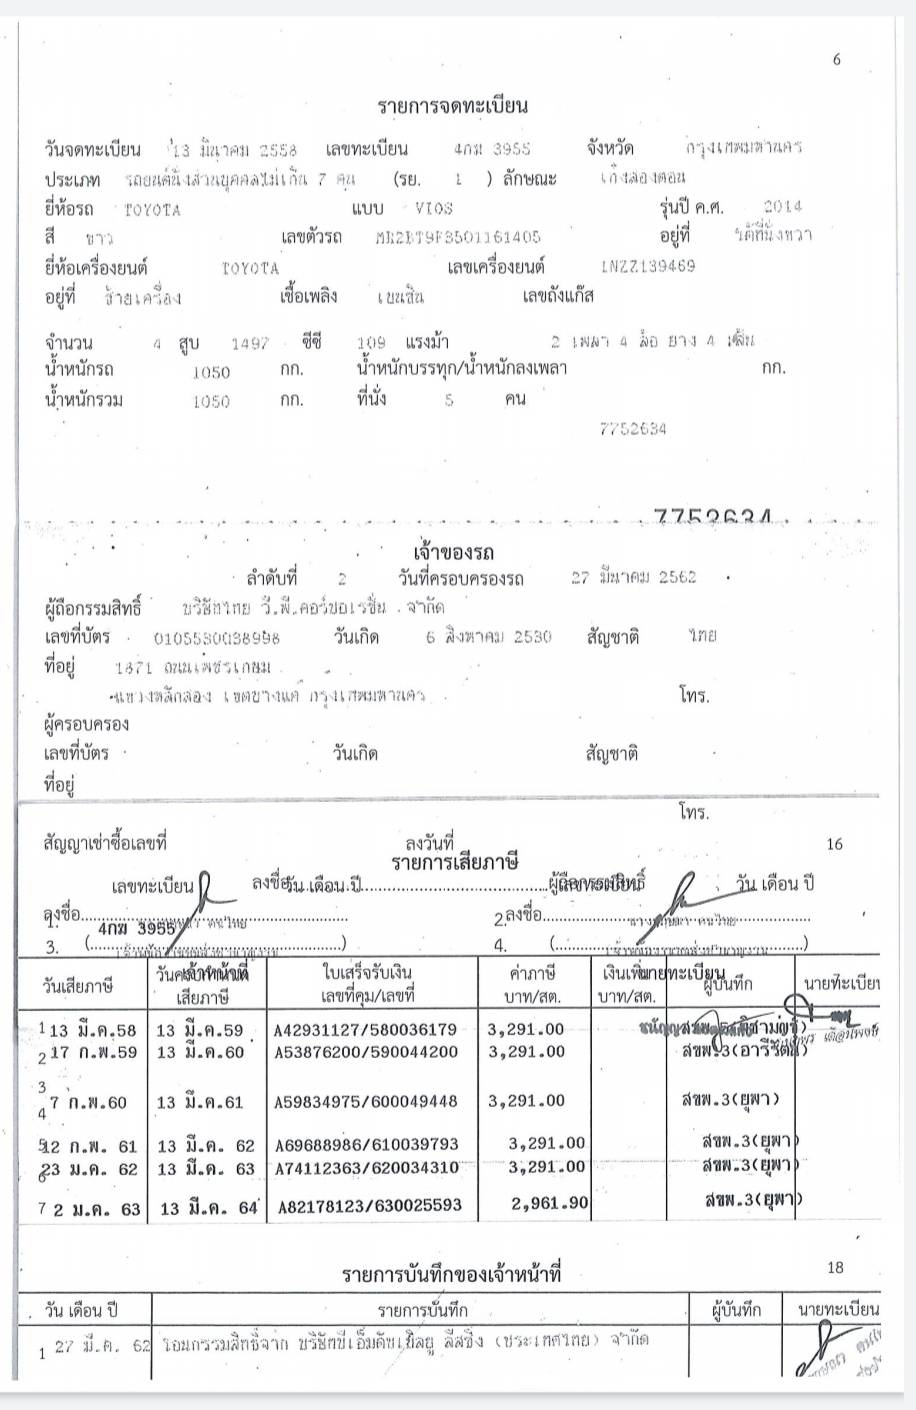 6
รายการจดทะเบียน
วันจดทะเบียน 13 มีนาคม 2558 เลขทะเบียน 4กฆ 3955 จังหวัด กรุงเทพมหานคร
ประเภท รถยนต์นั่งส่วนบุคคลไม่เกิน 7 คน (รย. 1 ) ลักษณะ เก๋งสองตอน
ยี่ห้อรถ TOYOTA แบบ VIOS รุ่นปี ค.ศ. 2014
สี ขาว เลขตัวรถ MR2BT9F3501161405 อยู่ที่ ใต้ที่นั่งขวา
ยี่ห้อเครื่องยนต์ TOYOTA เลขเครื่องยนต์ 1NZZ139469
อยู่ที่ ซ้ายเครื่อง เชื้อเพลิง เบนซิน เลขถังแก๊ส
จำนวน 4 สูบ 1497 ซีซี 109 แรงม้า 2 เพลา 4 ล้อ ยาง 4 เส้น
น้ำหนักรถ 1050 กก. น้ำหนักบรรทุก/น้ำหนักลงเพลา กก.
น้ำหนักรวม 1050 กก. ที่นั่ง 5 คน
7752634
7752634
เจ้าของรถ
ลำดับที่ 2 วันที่ครอบครองรถ 27 มีนาคม 2562
ผู้ถือกรรมสิทธิ์ บริษัทไทย วี.พี.คอร์ปอเรชั่น จำกัด
เลขที่บัตร 0105530038998 วันเกิด 6 สิงหาคม 2530 สัญชาติ ไทย
ที่อยู่ 1871 ถนนเพชรเกษม
แขวงหลักสอง เขตบางแค กรุงเทพมหานคร โทร.
ผู้ครอบครอง
เลขที่บัตร วันเกิด สัญชาติ
ที่อยู่
โทร.
สัญญาเช่าซื้อเลขที่ ลงวันที่ 16
รายการเสียภาษี
เลขทะเบียน ลงชื่อ วัน เดือน ปี ผู้ถือกรรมสิทธิ์ เลขทะเบียน วัน เดือน ปี
ลงชื่อ 2. ลงชื่อ
1. 4กฆ 3955
3. (....) 4. (....)
วันเสียภาษี วันครบกำหนดเสียภาษี เจ้าหน้าที่ ใบเสร็จรับเงิน เลขที่คุม/เลขที่ ค่าภาษี บาท/สต. เงินเพิ่ม บาท/สต. นายทะเบียน ผู้บันทึก นายทะเบียน
1 13 มี.ค.58 13 มี.ค.59 A42931127/580036179 3,291.00
2 17 ก.พ.59 13 มี.ค.60 A53876200/590044200 3,291.00 สขพ.3(อารีรัตน์)
3
4 7 ก.พ.60 13 มี.ค.61 A59834975/600049448 3,291.00 สขพ.3(ยุพา)
5 12 ก.พ. 61 13 มี.ค. 62 A69688986/610039793 3,291.00 สขพ.3(ยุพา)
6 23 ม.ค. 62 13 มี.ค. 63 A74112363/620034310 3,291.00 สขพ.3(ยุพา)
7 2 ม.ค. 63 13 มี.ค. 64 A82178123/630025593 2,961.90 สขพ.3(ยุพา)
18
รายการบันทึกของเจ้าหน้าที่
วัน เดือน ปี รายการบันทึก ผู้บันทึก นายทะเบียน
1 27 มี.ค. 62 โอนกรรมสิทธิ์จาก บริษัทบีเอ็มดับเบิลยู ลีสซิ่ง (ประเทศไทย) จำกัด